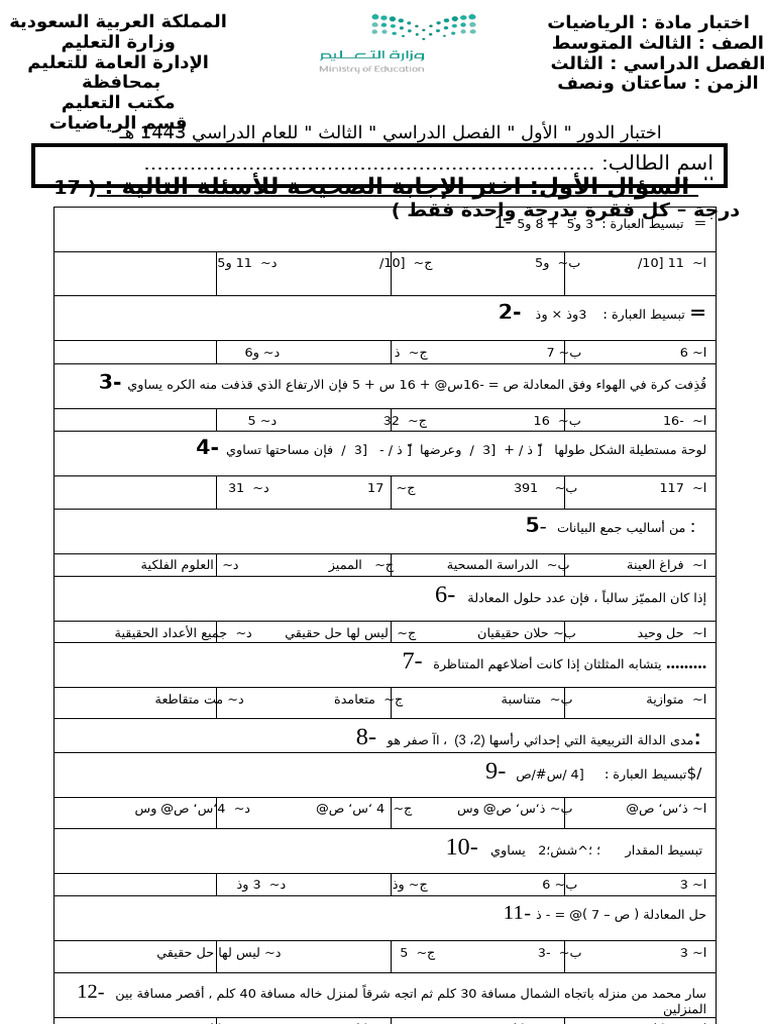 اختبار مادة : الرياضيات
الصف : الثالث المتوسط
الفصل الدراسي : الثالث
الزمن : ساعتان ونصف
وزارة التعليم
Ministry of Education
المملكة العربية السعودية
وزارة التعليم
الإدارة العامة للتعليم
بمحافظة
مكتب التعليم
قسم الرياضيات
اختبار الدور " الأول " الفصل الدراسي " الثالث " للعام الدراسي 1443 هـ
اسم الطالب: ............................................................
السؤال الأول: اختر الإجابة الصحيحة للأسئلة التالية : ( 17
درجة – كل فقرة بدرجة واحدة فقط )
1- تبسيط العبارة : 3 و5 + 8 و5 =
ا~ 11 [10/ ب~ و5 ج~ [10/ د~ 11 و5
2- تبسيط العبارة : 3وذ × وذ =
ا~ 6 ب~ 7 ج~ ذ د~ و6
3- قُذِفت كرة في الهواء وفق المعادلة ص = -16س@ + 16 س + 5 فإن الارتفاع الذي قذفت منه الكره يساوي
ا~ -16 ب~ 16 ج~ 32 د~ 5
4- لوحة مستطيلة الشكل طولها ]ّ ذ / + [3 / وعرضها ]ّ ذ / - [3 / فإن مساحتها تساوي
ا~ 117 ب~ 391 ج~ 17 د~ 31
5- من أساليب جمع البيانات :
ا~ فراغ العينة ب~ الدراسة المسحية ج~ المميز د~ العلوم الفلكية
6- إذا كان المميّز سالباً ، فإن عدد حلول المعادلة
ا~ حل وحيد ب~ حلان حقيقيان ج~ ليس لها حل حقيقي د~ جميع الأعداد الحقيقية
7- يتشابه المثلثان إذا كانت أضلاعهم المتناظرة .........
ا~ متوازية ب~ متناسبة ج~ متعامدة د~ مت متقاطعة
8- مدى الدالة التربيعية التي إحداثي رأسها (2، 3) ، اآ صفر هو:
9- تبسيط العبارة : [4 /س#/ص /$
ا~ ذ‘س‘ ص@ ب~ ذ‘س‘ ص@ وس ج~ 4 ‘س‘ ص@ د~ 4‘س‘ ص@ وس
10- تبسيط المقدار ؛ ؛^شش؛2 يساوي
ا~ 3 ب~ 6 ج~ وذ د~ 3 وذ
11- حل المعادلة ( ص – 7 )@ = - ذ
ا~ 3 ب~ -3 ج~ 5 د~ ليس لها حل حقيقي
12- سار محمد من منزله باتجاه الشمال مسافة 30 كلم ثم اتجه شرقاً لمنزل خاله مسافة 40 كلم , أقصر مسافة بين
المنزلين